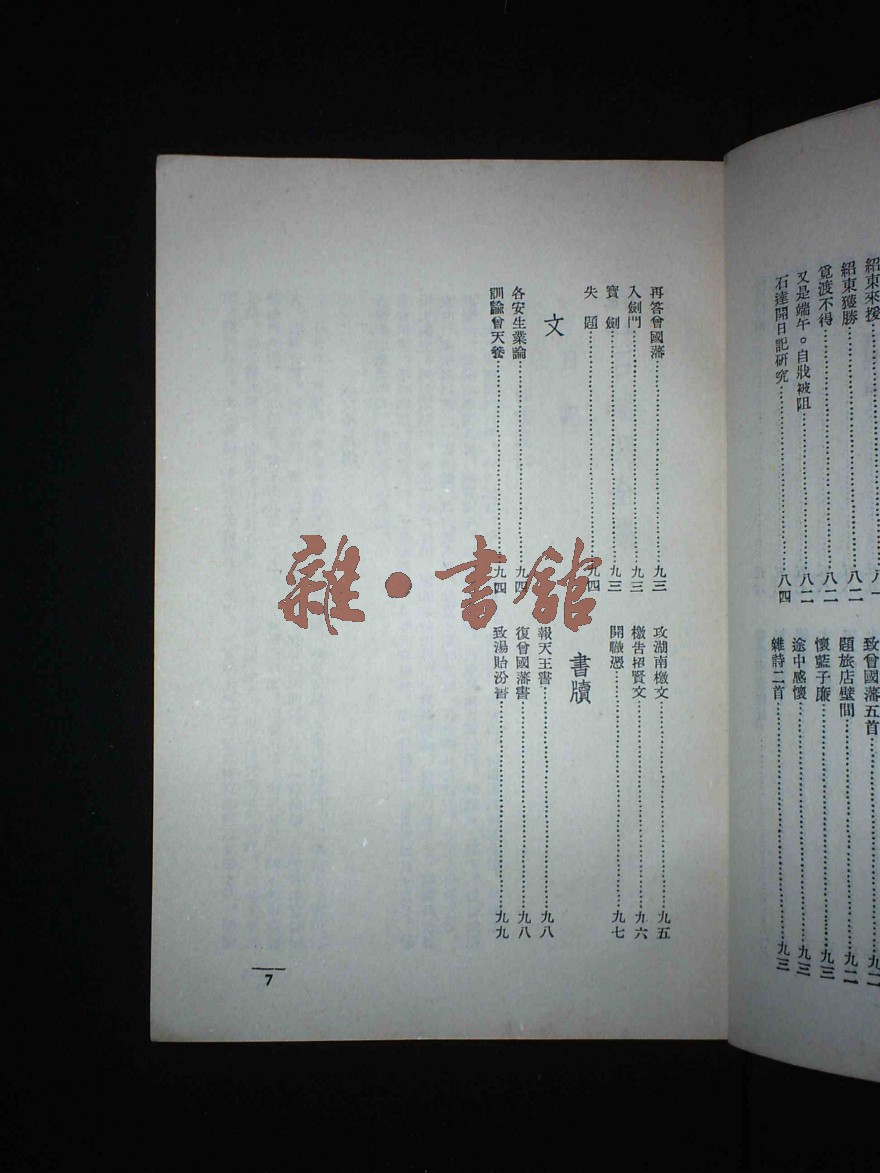 紹東來援……八一
紹東獲勝……八二
覓渡不得……八二
又是端午。自戕被阻……八二
石達開日記研究……八四
致曾國藩五首……九二
題旅店壁間……九二
懷藍子廉……九三
途中感懷……九三
雜詩二首……九三
再答曾國藩……九三
入劍門……九三
寶劍……九三
失題……九四
文
各安生業諭……九四
訓諭曾天養……九四
攻湖南檄文……九五
檄告招賢文……九六
開職憑……九七
書牘
報天王書……九八
復曾國藩書……九八
致湯貽汾書……九九
7
雜·書館